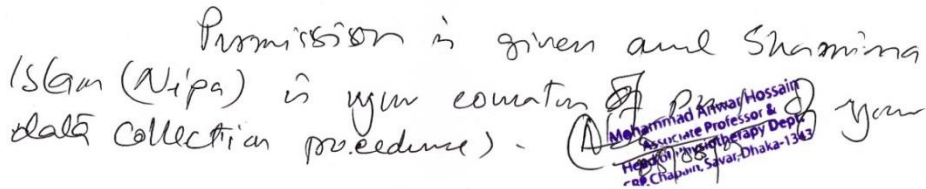 Permission is given and Shamima
Islam (Nipa) is your
data collection procedure). your
Mohammad Anwar Hossain
Associate Professor &
Head of Physiotherapy Dept.
CRP, Chapain, Savar, Dhaka-1343